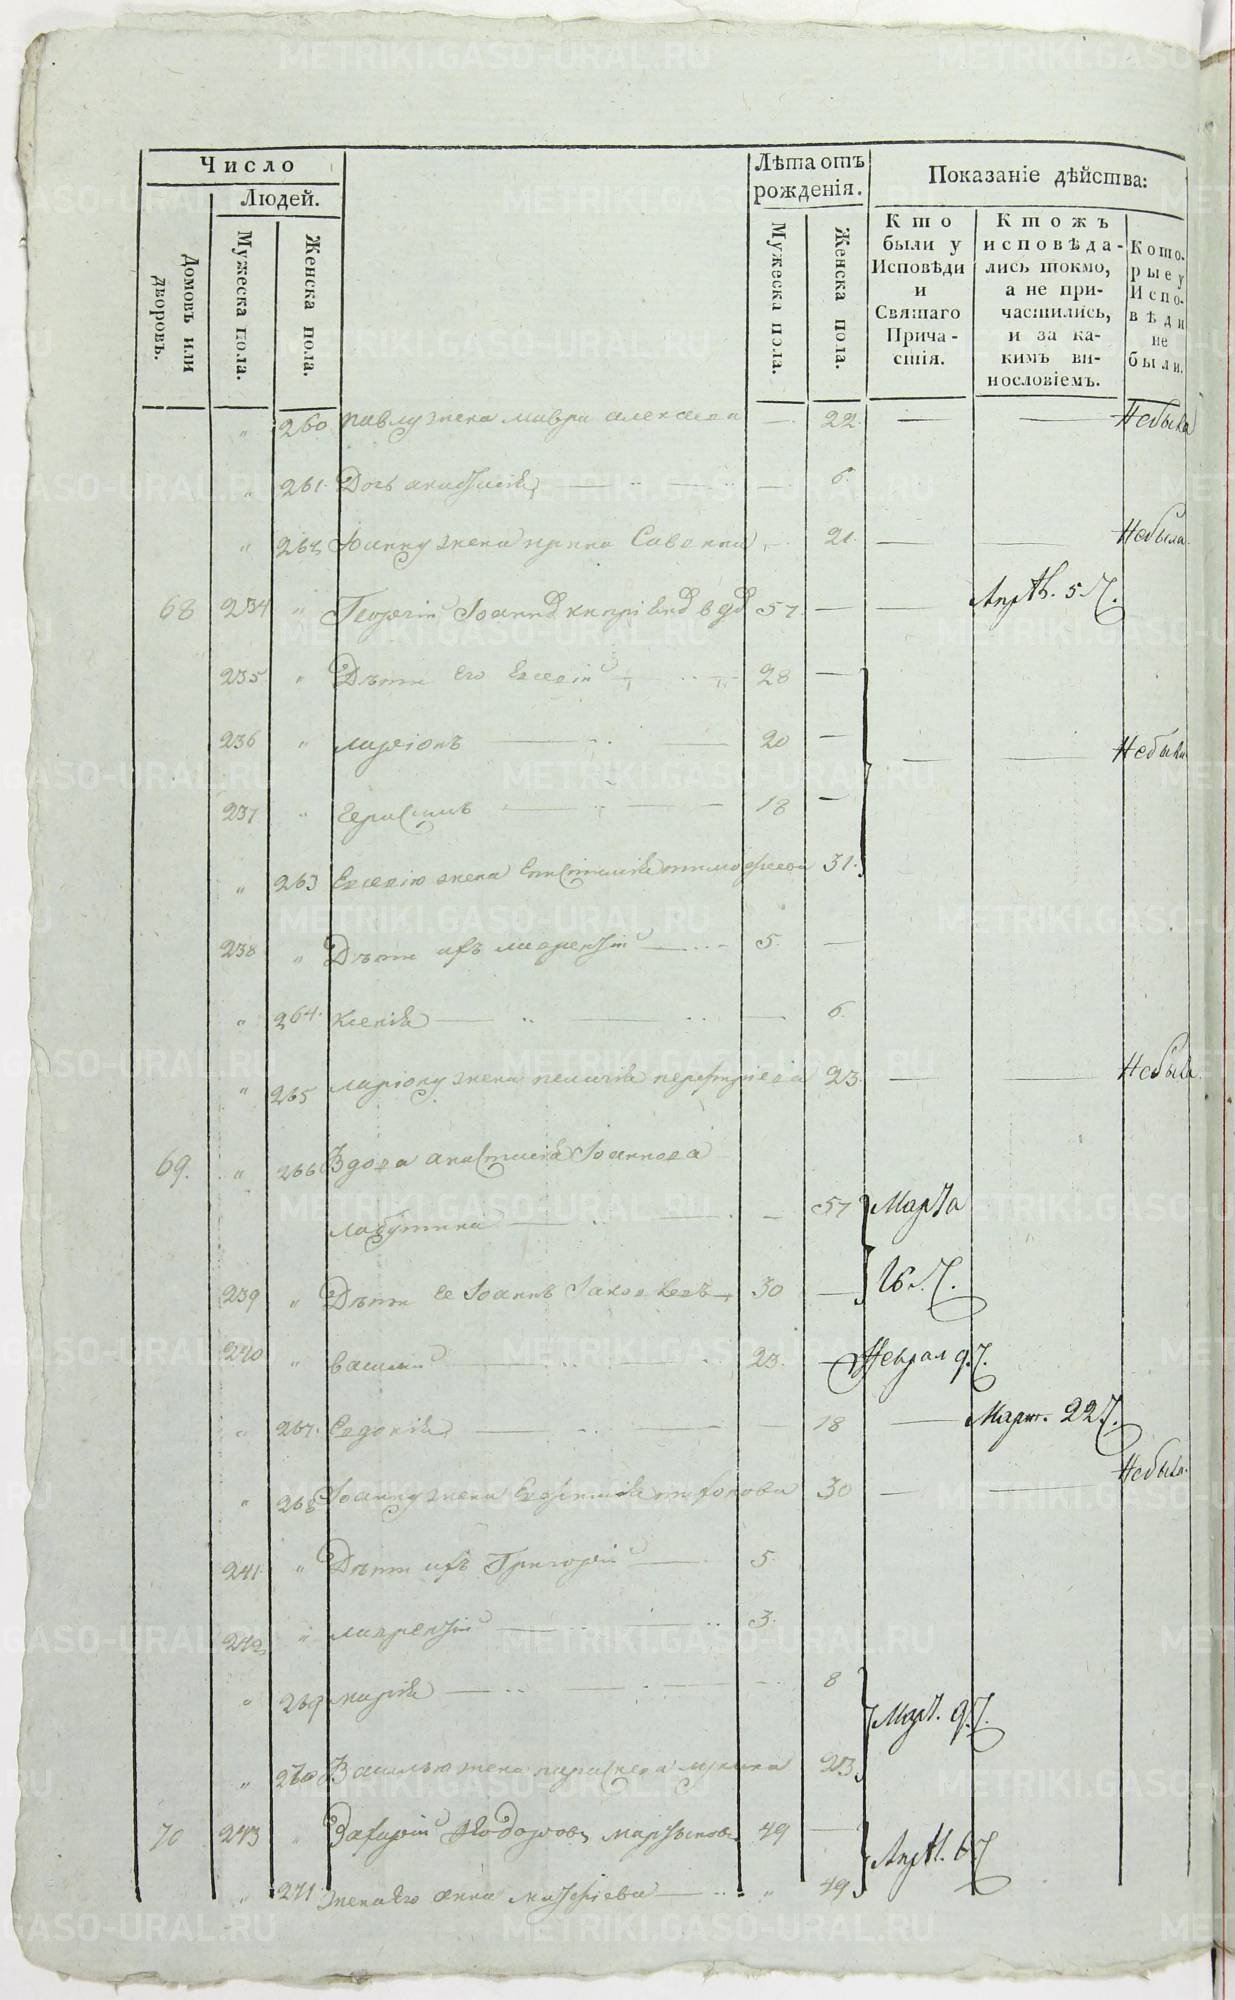 Число
Людей.
Домовъ или дворовъ.
Мужеска пола.
Женска пола.
Лѣта отъ рожденія.
Мужеска пола.
Женска пола.
Показаніе дѣйства:
Кто были у Исповѣди и Святаго Причастія.
Ктожъ исповѣдались токмо, а не причастились, и за какимъ винословіемъ.
Которые у Исповѣди не были.
„ 260 павлу жена мавра алексеева — 22. — — Небыла
„ 261. Дочь анастасія — 6.
„ 262 Іоанну жена ирина Савоина — 21. — — Небыла.
68 234 „ Георгій Іоанновъ вдовъ 57. — — Апрѣл. 5. Ч.
235 „ Дѣти его Евсевій 28 —
236 „ ларіонъ 20 — — — Небыли
237 „ Герасимъ 18 —
„ 263 Евсевію жена тимофеева 31.
238 „ Дѣти ихъ лаврентій 5. —
„ 264. Ксенія — 6.
„ 265 ларіону жена пелагія 23. — — Небыла.
69. „ 266 Вдова анастасія Іоаннова
лабутина — 57 Марта
239 „ Дѣти ее Іоаннъ Іаковлевъ 30 — 16. Ч.
240 „ василій 23. — Феврал 9. Ч.
„ 267. Евдокія — 18 — Март. 22 Ч.
„ 268 Іоанну жена 30 — — Небыла.
241. „ Дѣти ихъ Григорій 5.
242 „ лаврентій 3.
„ 269 марія — 8
Март. 9. Ч.
„ 270 Василью жена параскева 23.
70 243 „ Захарій Ѳеодоровъ 49 —
Апрѣл. 6 Ч
„ 271. жена Его анна „ 49
METRIKI.GASO-URAL.RU